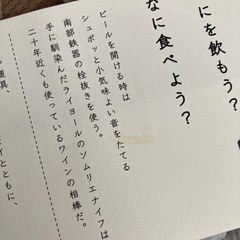 にを飲もう?
なに食べよう?
ビールを開ける時は
シュポッと小気味よい音をたてる
南部鉄器の栓抜きを使う。
手に馴染んだライヨールのソムリエナイフは
二十年近くも使っているワインの相棒だ。
とともに、
道具